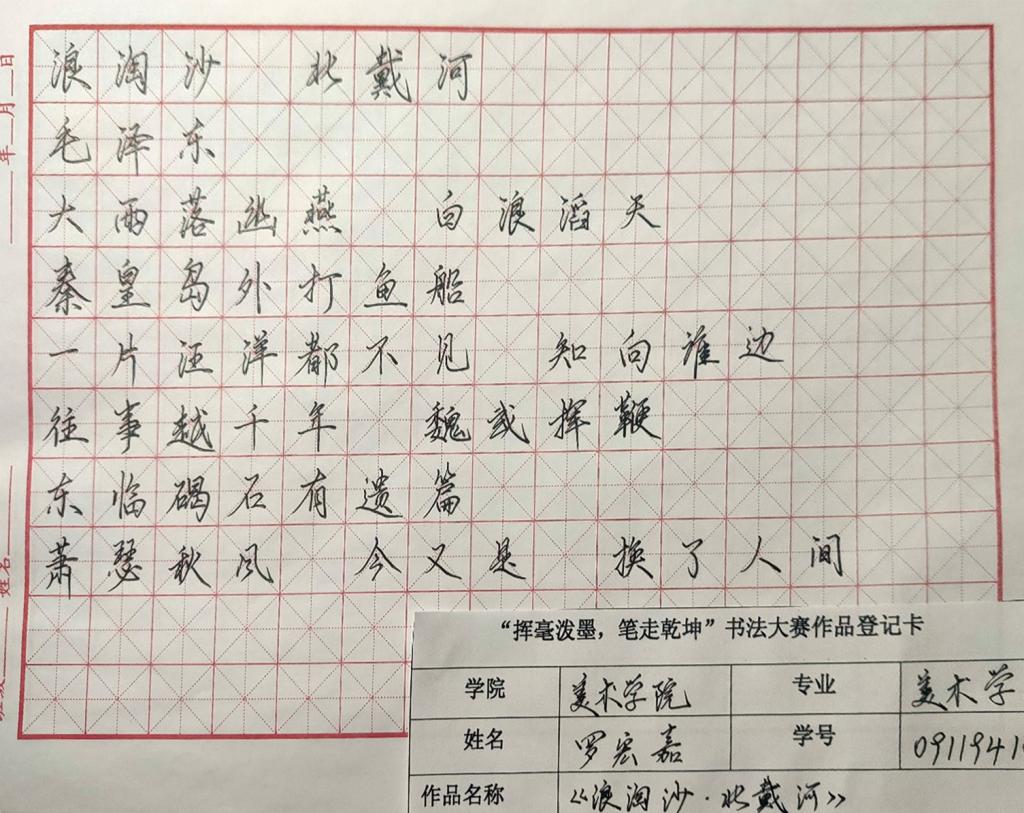 浪淘沙 北戴河
毛泽东
大雨落幽燕 白浪滔天
秦皇岛外打鱼船
一片汪洋都不见 知向谁边
往事越千年 魏武挥鞭
东临碣石有遗篇
萧瑟秋风 今又是 换了人间
年 月 日
姓名
“挥毫泼墨，笔走乾坤”书法大赛作品登记卡
学院 美术学院 专业 美术学
姓名 罗宏嘉 学号 0911941
作品名称 《浪淘沙·北戴河》